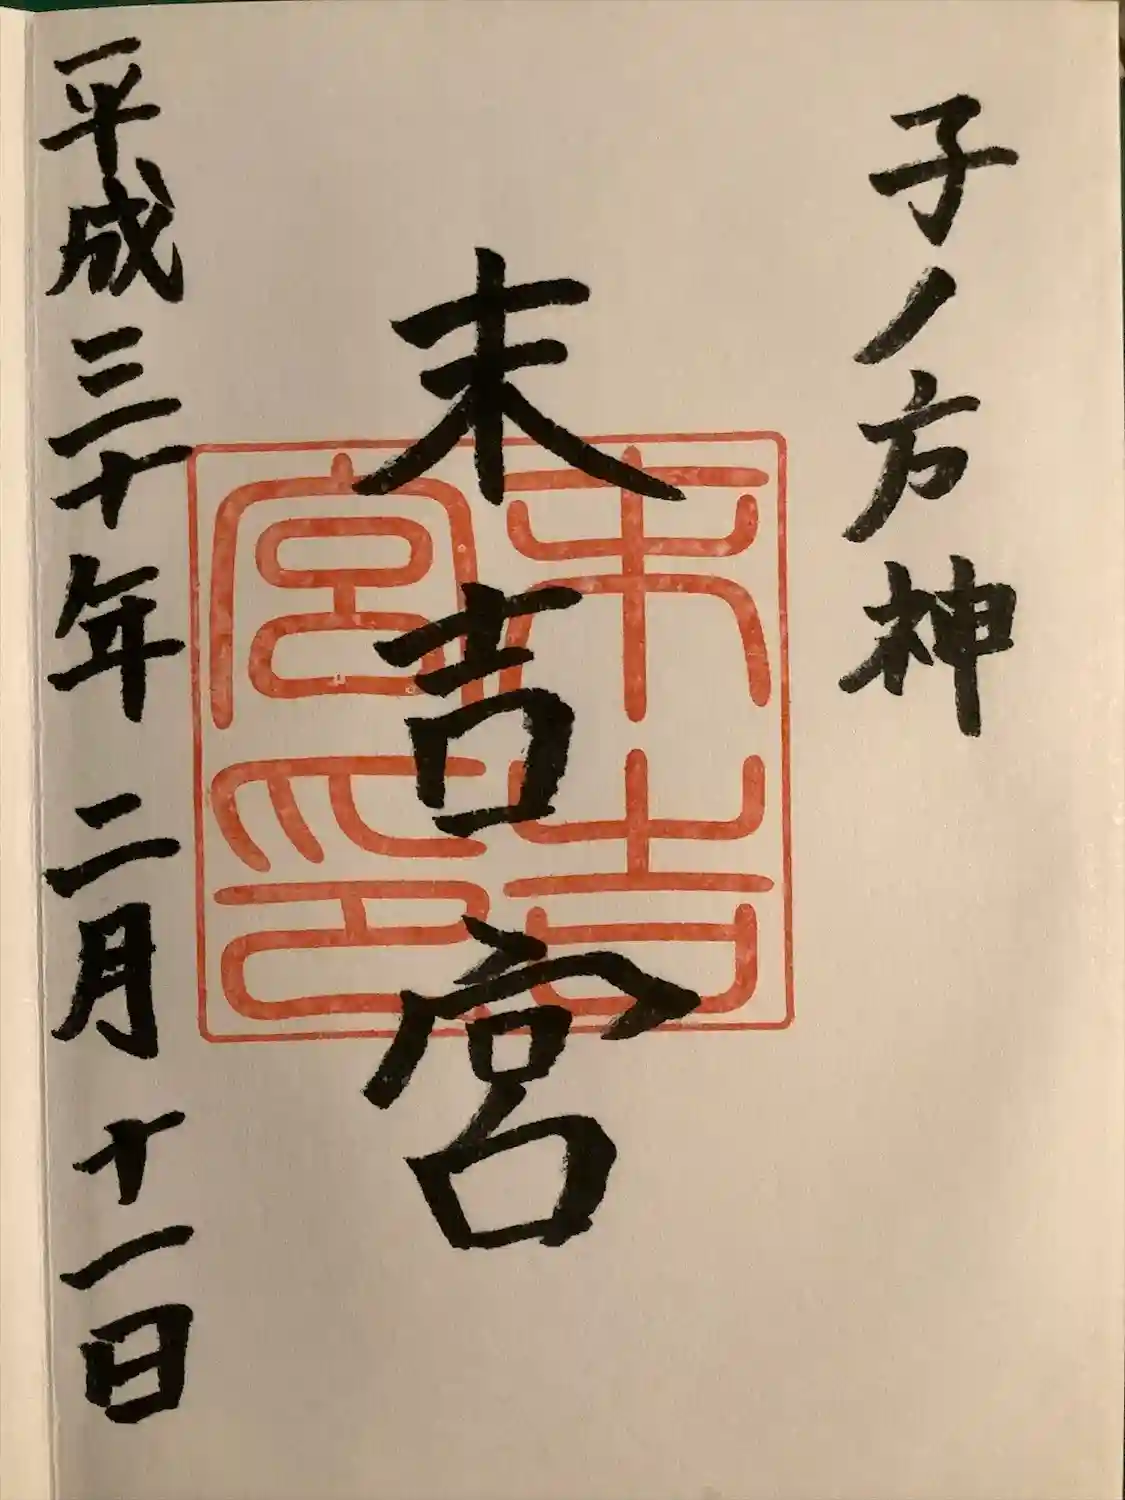 子ノ方神
末吉宮
末吉宮印
平成三十年二月十一日